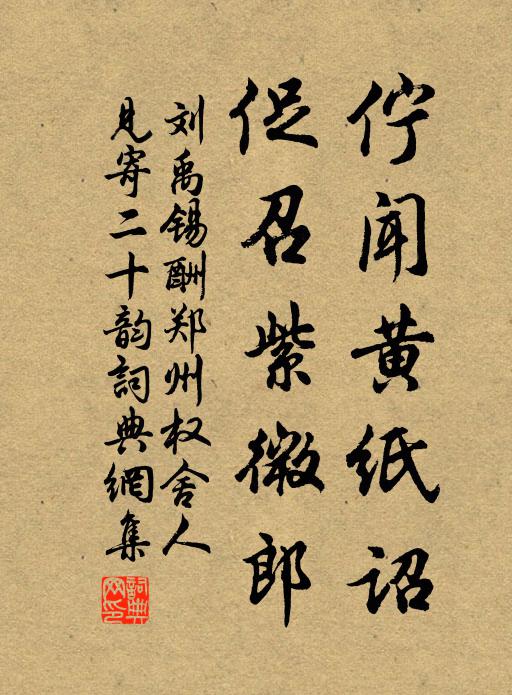 伫闻黄纸诏
促召紫微郎
刘禹锡酬郑州权舍人
见寄二十韵詞典網集
詞典网印